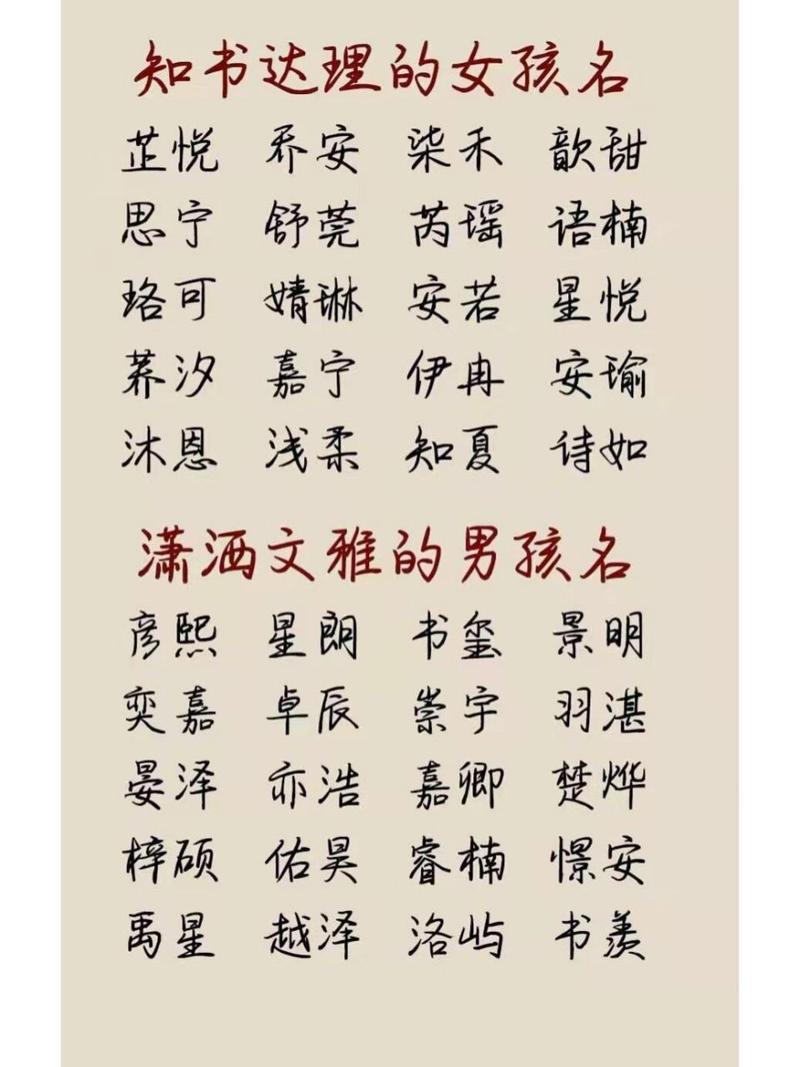 知书达理的女孩名
芷悦 乔安 柒禾 歆甜
思宁 舒莞 芮瑶 语楠
珞可 婧琳 安若 星悦
荞汐 嘉宁 伊冉 安瑜
沐恩 浅柔 知夏 诗如
潇洒文雅的男孩名
彦熙 星朗 书玺 景明
奕嘉 卓辰 崇宇 羽湛
晏泽 亦浩 嘉卿 楚烨
梓硕 佑昊 睿楠 憬安
禹星 越泽 洛屿 书羡